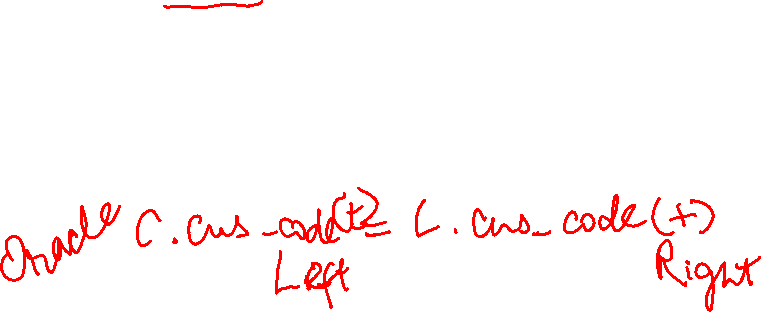 Oracle C.cus_code(+) = L.cus_code(+)
Left Right